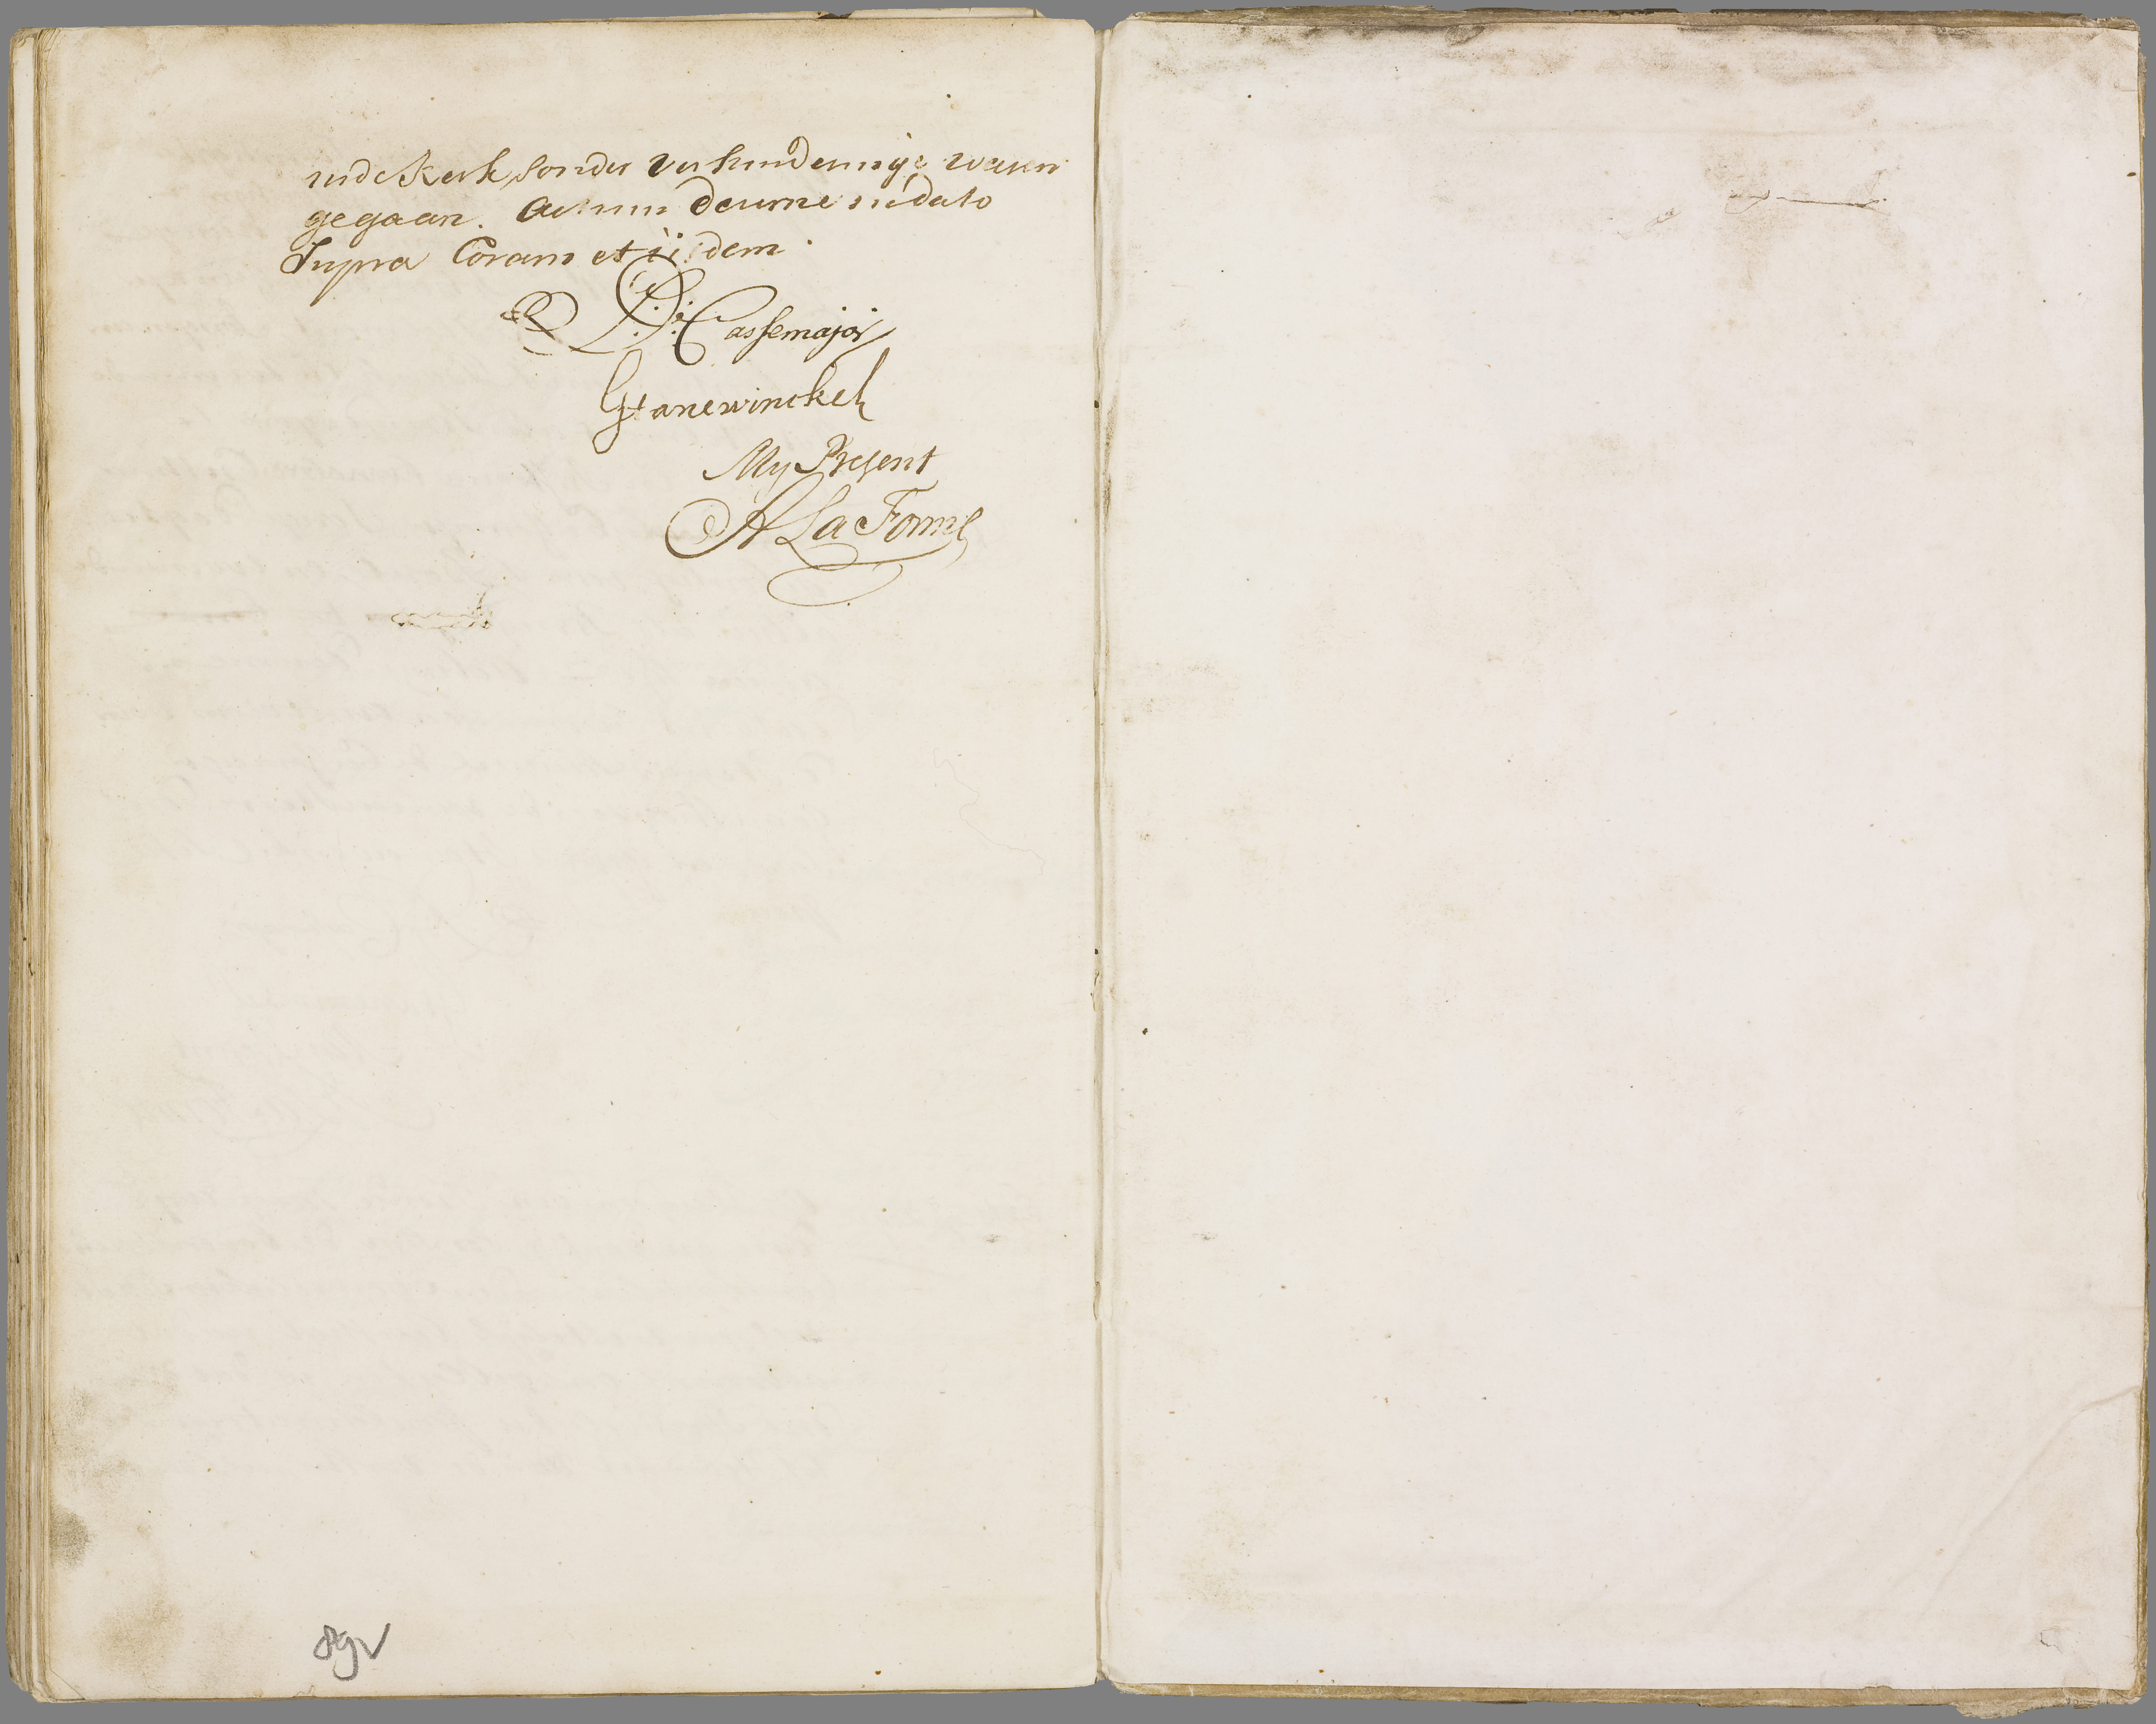 in de Kerk, sonder verhinderinge waren
gegaan. Actum Deurne in dato
Supra Coram et iisdem
P: D: Cassemajor
G Stanewinckel
My Present
A La Forme
89v